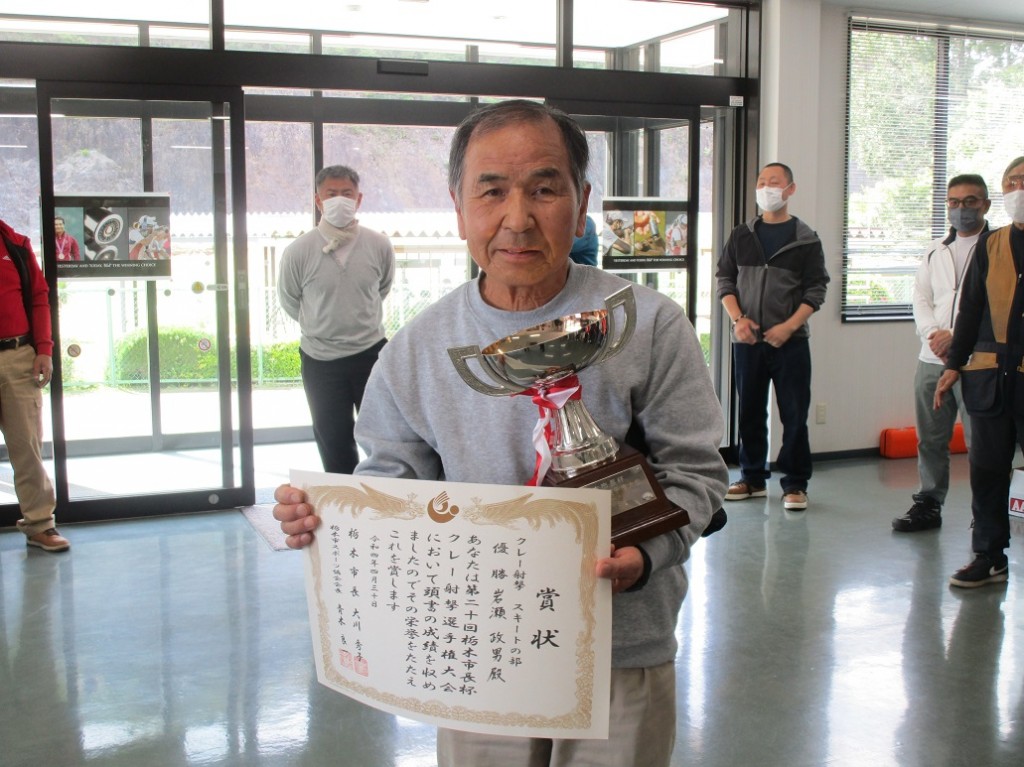 賞状
クレー射撃 スキートの部
優勝 岩瀬 政男 殿
あなたは第二十回栃木市長杯
クレー射撃選手権大会
において頭書の成績を収め
ましたのでその栄誉をたたえ
これを賞します
令和四年四月三十日
栃木市長 大川 秀子
栃木市スポーツ協会会長 青木 良一